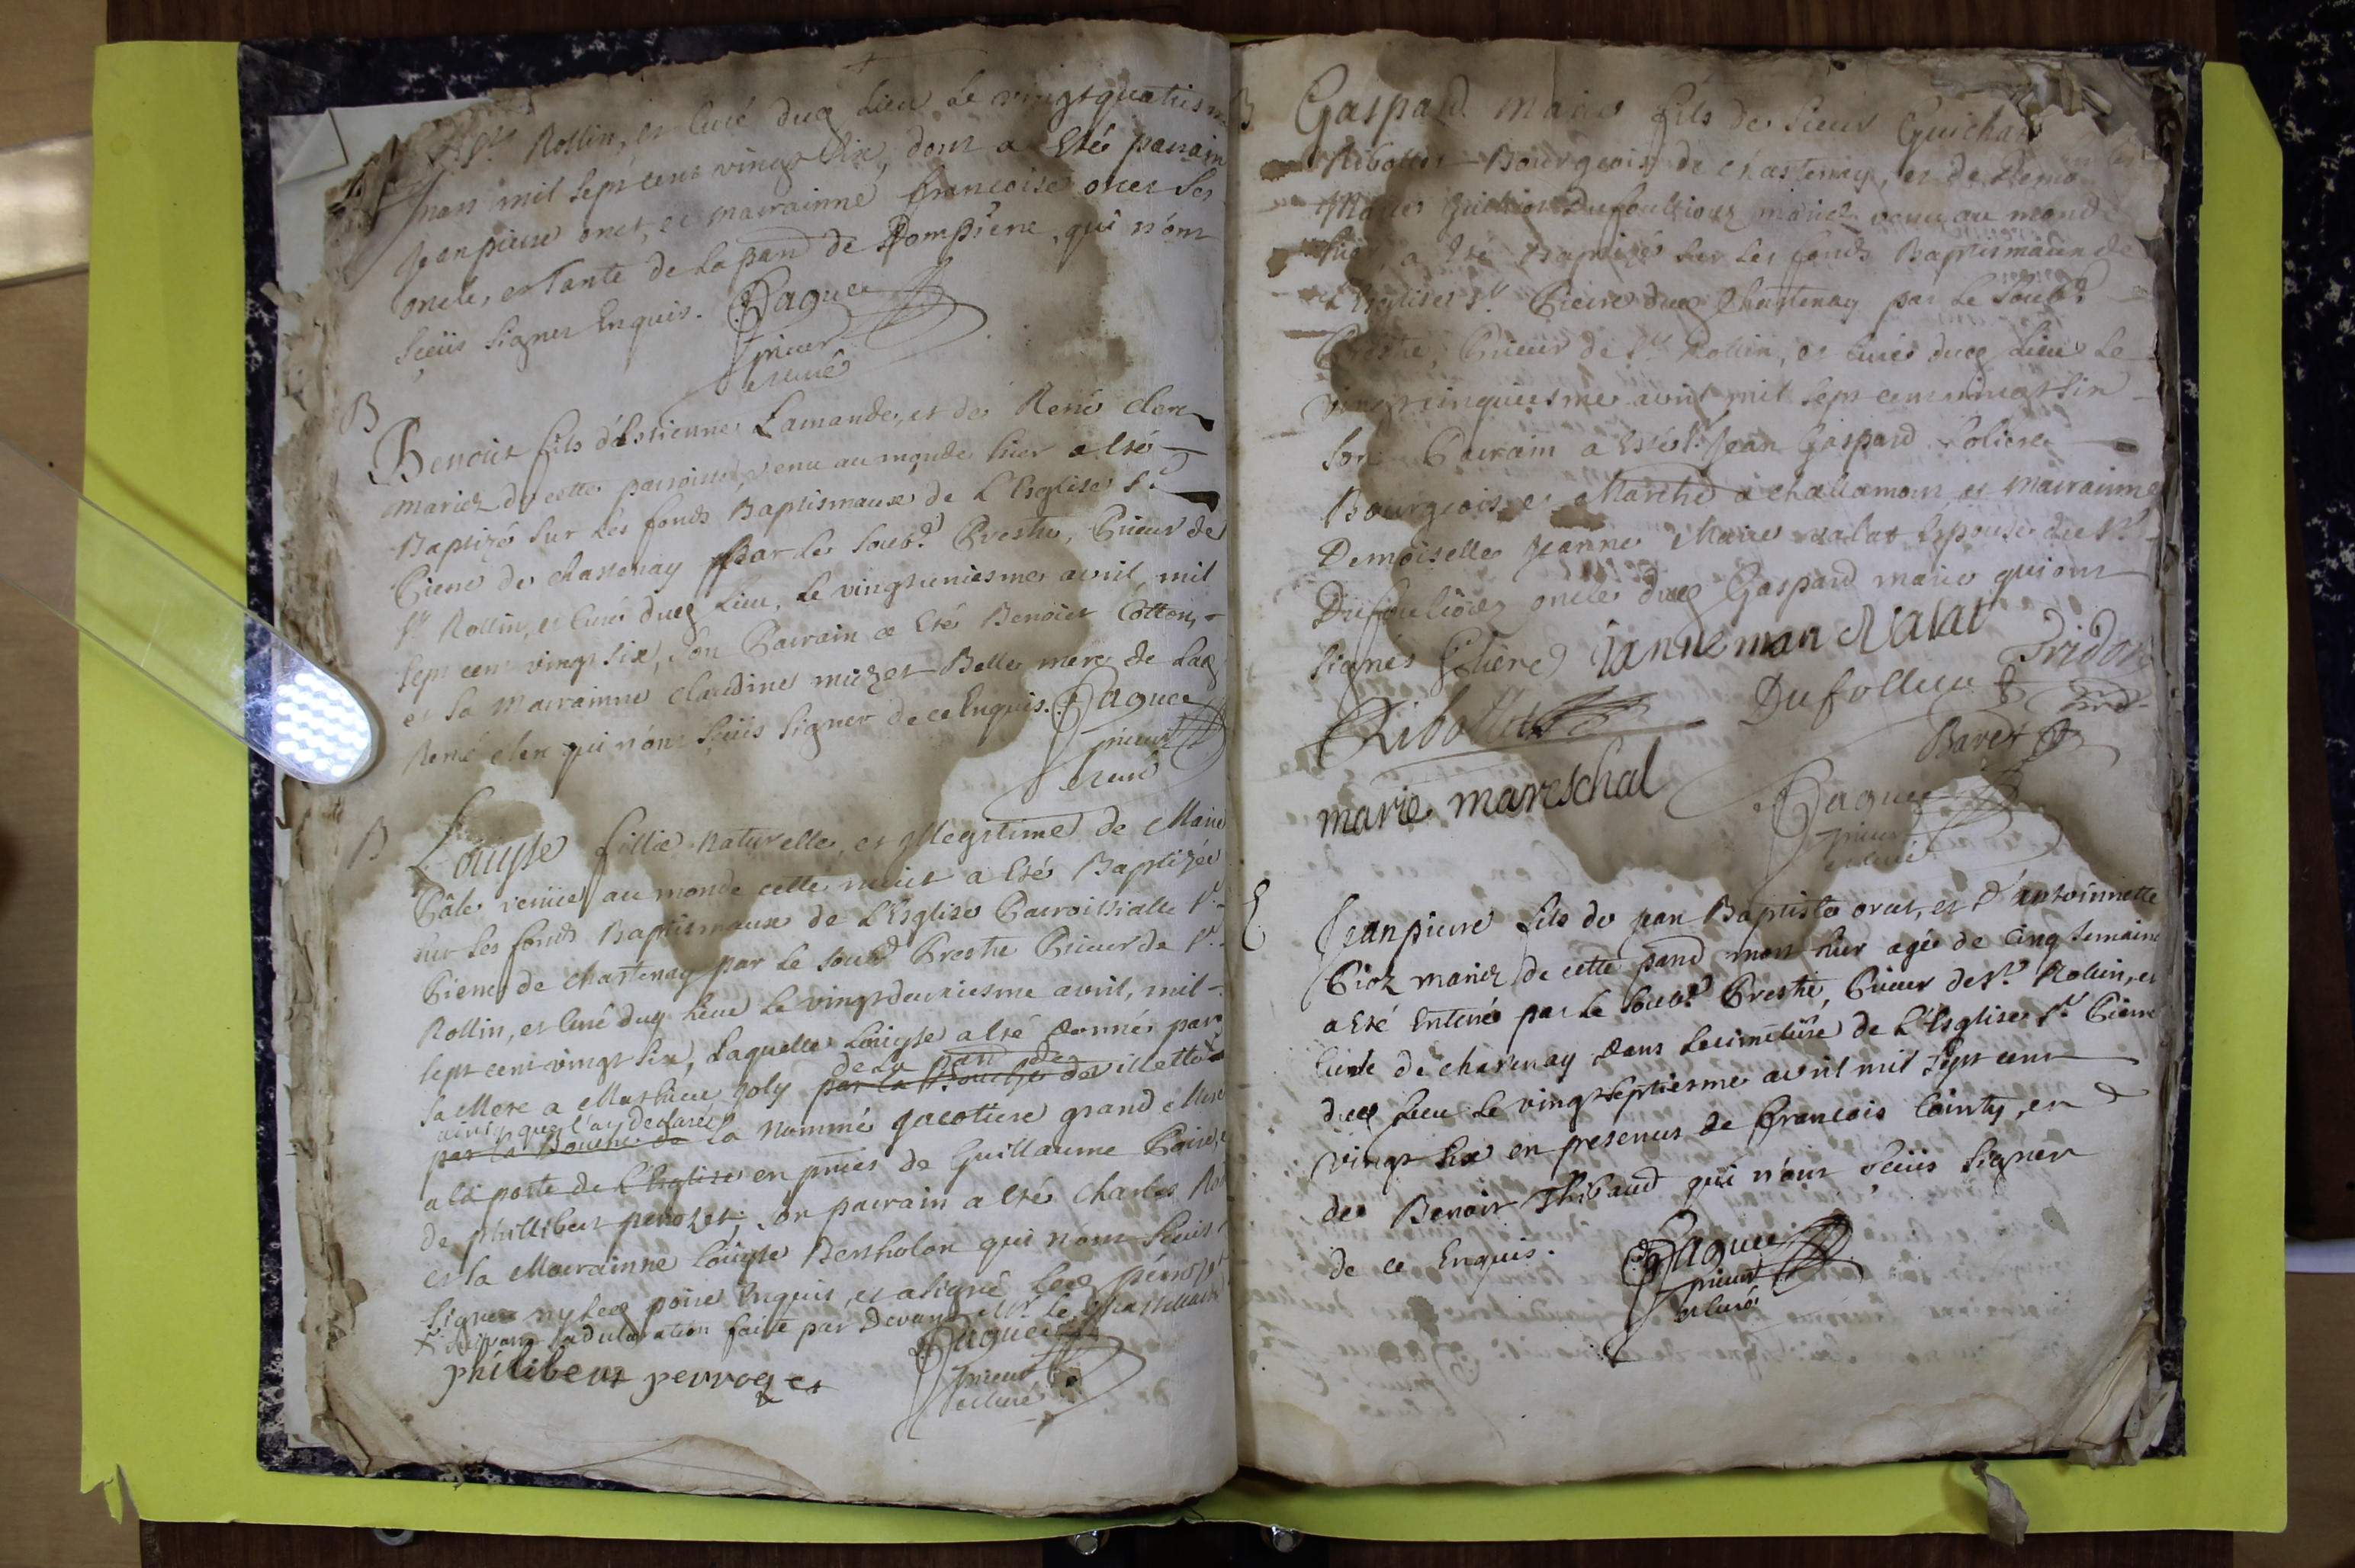 St Rollin, et Curé dud Lieu Le vingtquatriesme
mars mil Sept cent vingt Six, dont a Esté parrain
Jean pierre oret, et marrainne francoise oret Ses
oncle, et Tante de La parr de Dompierre, qui n'ont
Sceüs Signer Enquis. Daguer
prieur
et curé
B
Benoist fils d'Estienne Lamande, et de René clerc
mariez de cette parroisse, venu au monde hier a Esté
Baptizé Sur Les fonds Baptismaux de L'Esglise St
Pierre de chastenay par Le Soubd Prestre, Prieur de
St Rollin, et Curé dud Lieu, Le vingtuniesme avril, mil
Sept cent vingt Six, Son Parrain a Esté Benoist Cotton,
et Sa Marrainne claudine michet Belle mere de Lad
René clerc qui n'ont Sceüs Signer de ce Enquis. Daguer
prieur
et curé
B
Louyse fillie naturelle, et Illegitime de Marie
Pâle venüe au monde cette nuict a Esté Baptizée
sur Les fonds Baptismaux de L'Esglise Parroissialle St
Pierre de chastenay par Le Soubd Prestre Prieur de St
Rollin, et Curé dud Lieu Le vingtdeuxiesme avril, mil
Sept cent vingt Six, Laquelle Louyse a Esté donnée par
de La parr de
Sa Mere a Mathieu Joly par la Bouche de villette
ainsy que l'ay declaré
par la Bouche de La nommé Jacotiere grand Mere
a La porte de L'Esglise en pnces de Guillaume Poire, et
de phillibert perrozet, Son parrain a Esté Charles
et La Marrainne Louyse Bertholon qui n'ont Sceus
Signer ny Led poire Enquis, et a Signé Led perrozet
suivant La declaration faitte par Devant Mr Le Chastellain
Daguer
philibert perrozet
prieur
et curé
B
Gaspard Marie fils de Sieur Guichard
Ribollet Bourgeois de chastenay, et de Demo
Marie Dufoullioux mariez venu au monde
hier, a Esté Baptizé Sur Les fonds Baptismaux de
L'Esglise St Pierre dud Chastenay par Le Soubd
Prestre, Prieur de St Rollin, et Curé dud Lieu Le
vingtcinquiesme avril mil Sept cent vingt Six
Son Parrain a Esté Sr Jean Gaspard Soliere
Bourgeois et Marchd a challamont et Marrainne
Demoiselle Jeanne Marie valat Espouse du Sr
Dufoulioux oncle dud Gaspard marie qui ont
Signés Soliere Janne marie Valat
Tridon
Ribollet Dufollieu
Baret
marie mareschal
Daguer
prieur
et curé
E
Jeanpierre fils de Jean Baptiste oret, et d'antoinnette
Piot mariez de cette parr mort hier agée de Cinq Semaine
a Esté Enterré par Le Soubd Prestre, Prieur de St Rollin, et
Curé de chastenay Dans Le cimetiere de L'Esglise St Pierre
dud Lieu Le vingtSeptiesme avril mil Sept cent
vingt Six en presence de francois Cointy, et
de Benoist Thibaud qui n'ont Sceüs Signer
de ce Enquis. Daguer
prieur
et curé